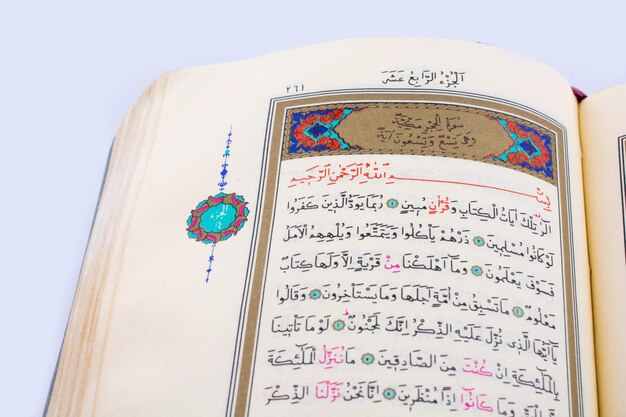 ٢٦١
اَلْجُزْءُ الرَّابِعُ عَشَرَ
سُورَةُ الْحِجْرِ مَكِّيَّةٌ
وَهِيَ تِسْعٌ وَتِسْعُونَ اٰيَةً
بِسْــــمِ اللّٰهِ الرَّحْمٰنِ الرَّحِيمِ
الٓرٰ تِلْكَ اٰيَاتُ الْكِتَابِ وَقُرْاٰنٍ مُبِينٍ ﴿١﴾ رُبَمَا يَوَدُّ الَّذِينَ كَفَرُوا
لَوْ كَانُوا مُسْلِمِينَ ﴿٢﴾ ذَرْهُمْ يَأْكُلُوا وَيَتَمَتَّعُوا وَيُلْهِهِمُ الْاَمَلُ
فَسَوْفَ يَعْلَمُونَ ﴿٣﴾ وَمَٓا اَهْلَكْنَا مِنْ قَرْيَةٍ اِلَّا وَلَهَا كِتَابٌ
مَعْلُومٌ ﴿٤﴾ مَا تَسْبِقُ مِنْ اُمَّةٍ اَجَلَهَا وَمَا يَسْتَأْخِرُونَ ﴿٥﴾ وَقَالُوا
يَٓا اَيُّهَا الَّذِي نُزِّلَ عَلَيْهِ الذِّكْرُ اِنَّكَ لَمَجْنُونٌ ﴿٦﴾ لَوْ مَا تَأْتِينَا
بِالْمَلٰٓئِكَةِ اِنْ كُنْتَ مِنَ الصَّادِقِينَ ﴿٧﴾ مَا نُنَزِّلُ الْمَلٰٓئِكَةَ
اِلَّا بِالْحَقِّ وَمَا كَانُٓوا اِذًا مُنْظَرِينَ ﴿٨﴾ اِنَّا نَحْنُ نَزَّلْنَا الذِّكْرَ
الجزء
١٤